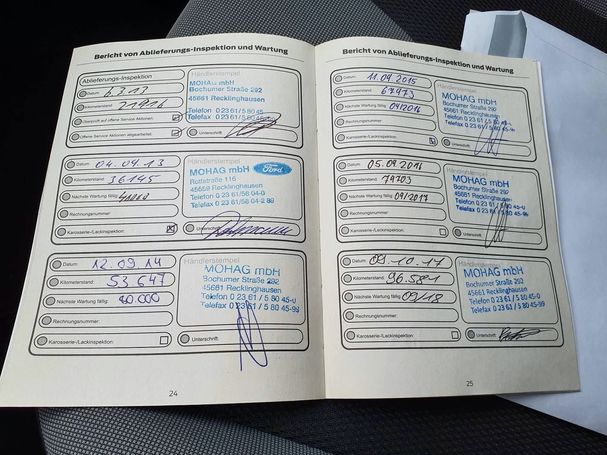 Bericht von Ablieferungs-Inspektion und Wartung
Ablieferungs-Inspektion
Datum: 6.3.13
Kilometerstand: 21916
Überprüft auf offene Service Aktionen:
Offene Service Aktionen abgearbeitet:
Händlerstempel
MOHAG mbH
Bochumer Straße 292
45661 Recklinghausen
Telefon 0 23 61 / 5 80 45-
Telefax
Unterschrift:
Datum: 04.04.13
Kilometerstand: 36145
Nächste Wartung fällig:
Rechnungsnummer:
Karosserie-/Lackinspektion:
Händlerstempel
MOHAG mbH Ford
116
Recklinghausen
Telefon 0 23 61/
Telefax 0 23 61/
Unterschrift:
Datum: 12.09.14
Kilometerstand: 53647
Nächste Wartung fällig: 80.000
Rechnungsnummer:
Karosserie-/Lackinspektion:
Händlerstempel
MOHAG mbH
Bochumer Straße 292
45661 Recklinghausen
Telefon 0 23 61 / 5 80 45-0
Telefax 0 23 61 / 5 80 45-99
Unterschrift:
24
Bericht von Ablieferungs-Inspektion und Wartung
Datum: 11.09.2015
Kilometerstand: 67973
Nächste Wartung fällig: 09/2016
Rechnungsnummer:
Karosserie-/Lackinspektion:
Händlerstempel
MOHAG mbH
Bochumer Straße 292
45661 Recklinghausen
Telefon 0 23 61 / 5 80 45-0
Telefax 0 23 61 / 5 80 45-99
Unterschrift:
Datum: 05.09.2016
Kilometerstand: 79703
Nächste Wartung fällig: 09/2017
Rechnungsnummer:
Karosserie-/Lackinspektion:
Händlerstempel
MOHAG mbH
Bochumer Straße 292
45661 Recklinghausen
Telefon 0 23 61 / 5 80 45-0
Telefax 0 23 61 / 5 80 45-99
Unterschrift:
Datum: 09.10.17
Kilometerstand: 96.581
Nächste Wartung fällig: 09/18
Rechnungsnummer:
Karosserie-/Lackinspektion:
Händlerstempel
MOHAG mbH
Bochumer Straße 292
45661 Recklinghausen
Telefon 0 23 61 / 5 80 45-0
Telefax 0 23 61 / 5 80 45-99
Unterschrift:
25